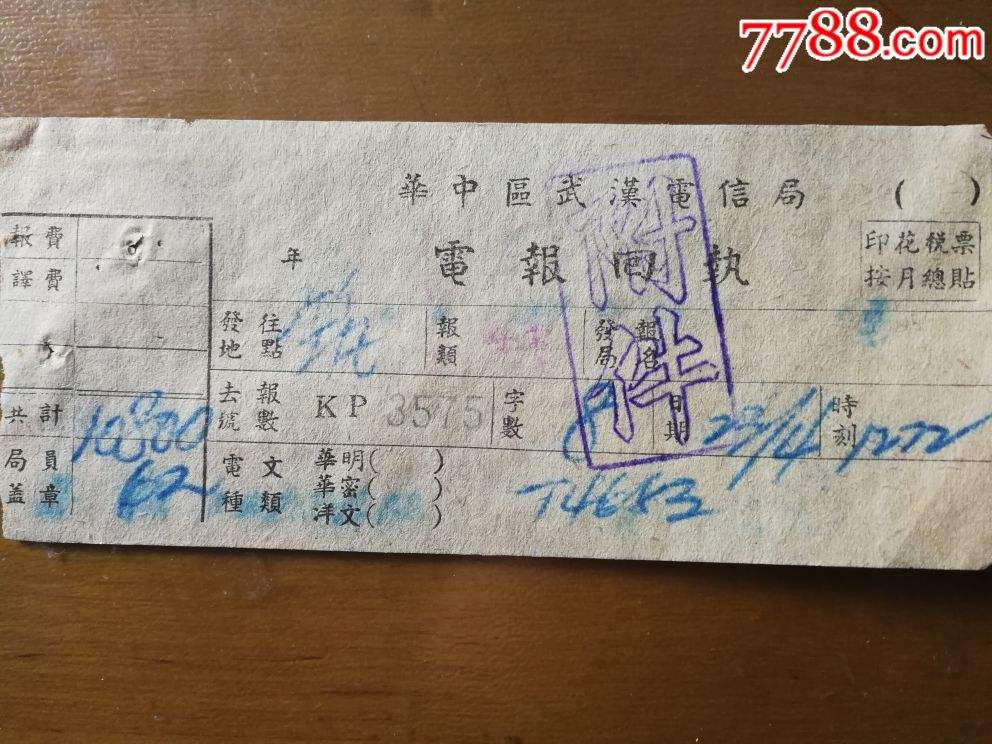 7788.com
華中區武漢電信局 ( )
年 電報回執
附件
印花稅票
按月總貼
報費
譯費
共計 10800
局員蓋章 62
發往地點
報類
發報局名
去報號數 KP 3575
字數
日期 23/4
時刻
電文種類
華明( )
華密( )
洋文( )
T4683